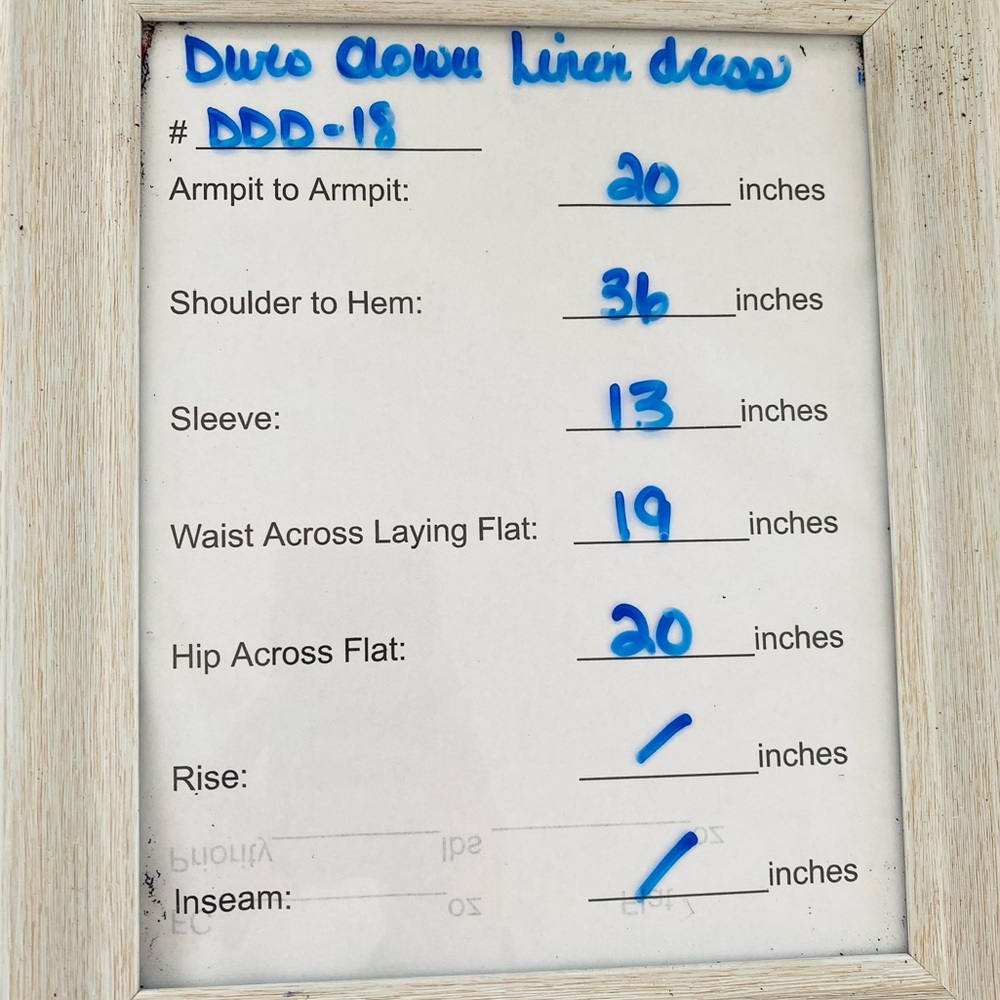 Linen dress
# DDD-18
Armpit to Armpit: 20 inches
Shoulder to Hem: 36 inches
Sleeve: 13 inches
Waist Across Laying Flat: 19 inches
Hip Across Flat: 20 inches
Rise: / inches
Priority lbs oz
Inseam: / inches
FC oz Flat